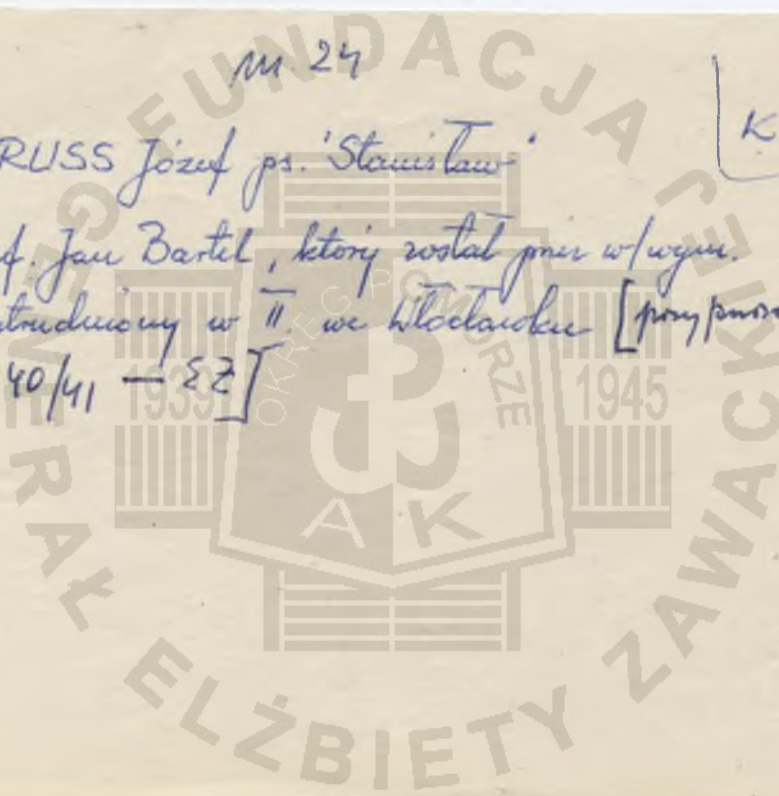 m 24
K
RUSS Józef ps. 'Stanisław'
f. Jan Bartel, który został przez w/wym.
trudniony w II. we Włocławku [przypuszcz
40/41 — EZ]
FUNDACJA GENERAŁ ELŻBIETY ZAWACKIEJ
OKRĘG POMORZE
1939 1945
AK